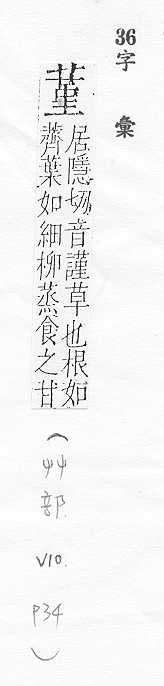 36
字彙
堇
居隱切音謹草也根如
薺葉如細柳蒸食之甘
(艸部 V10. P34)